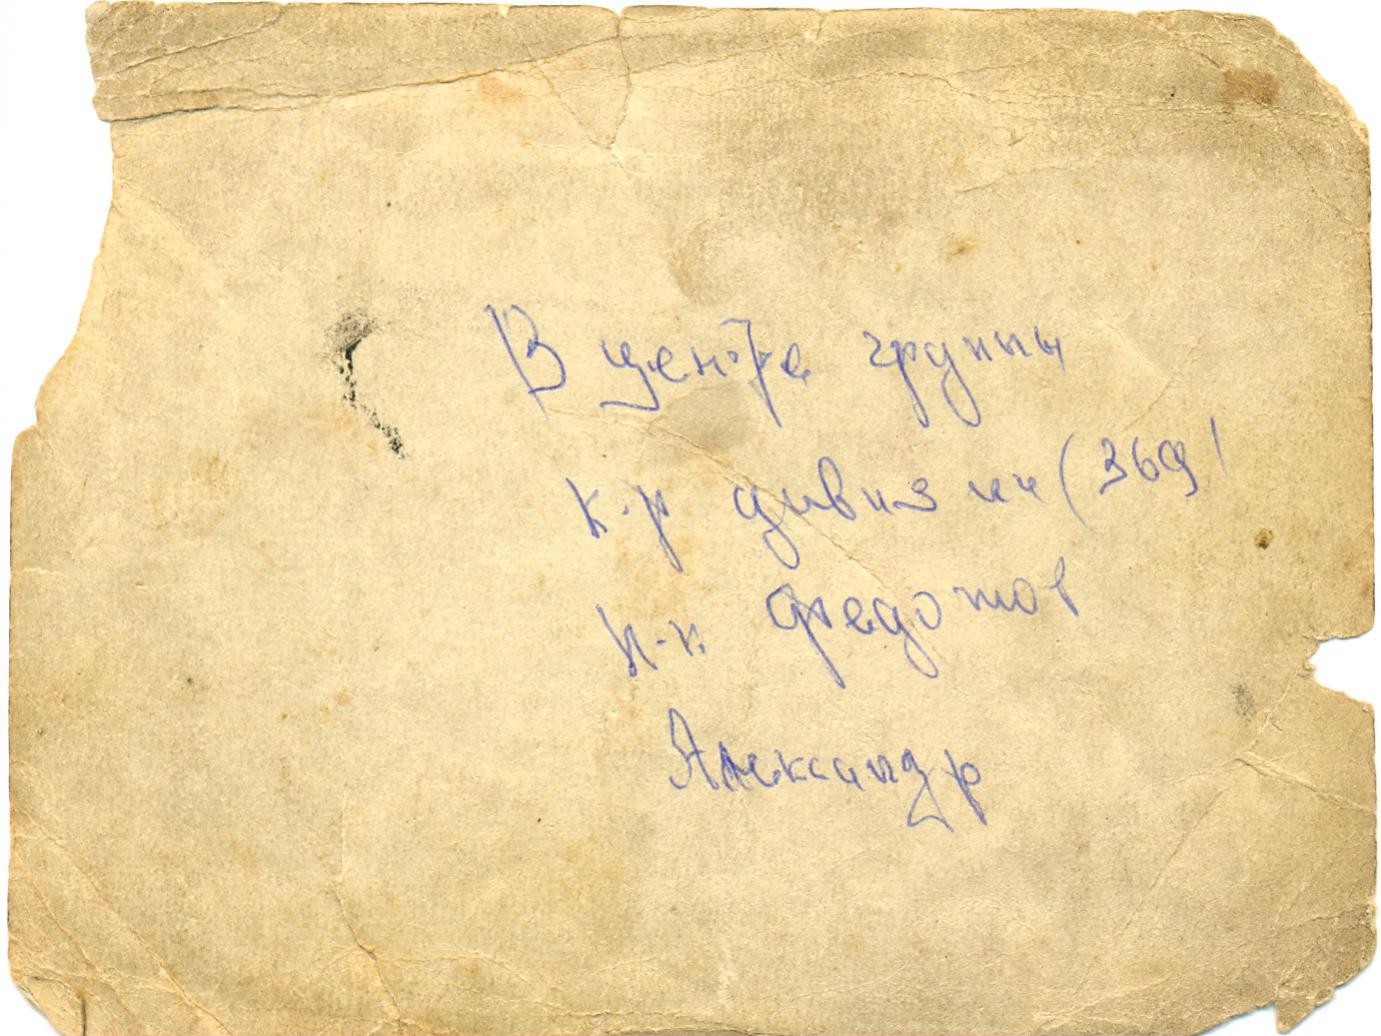 В центре группы
к-р дивизии (369)
п-к Федотов
Александр